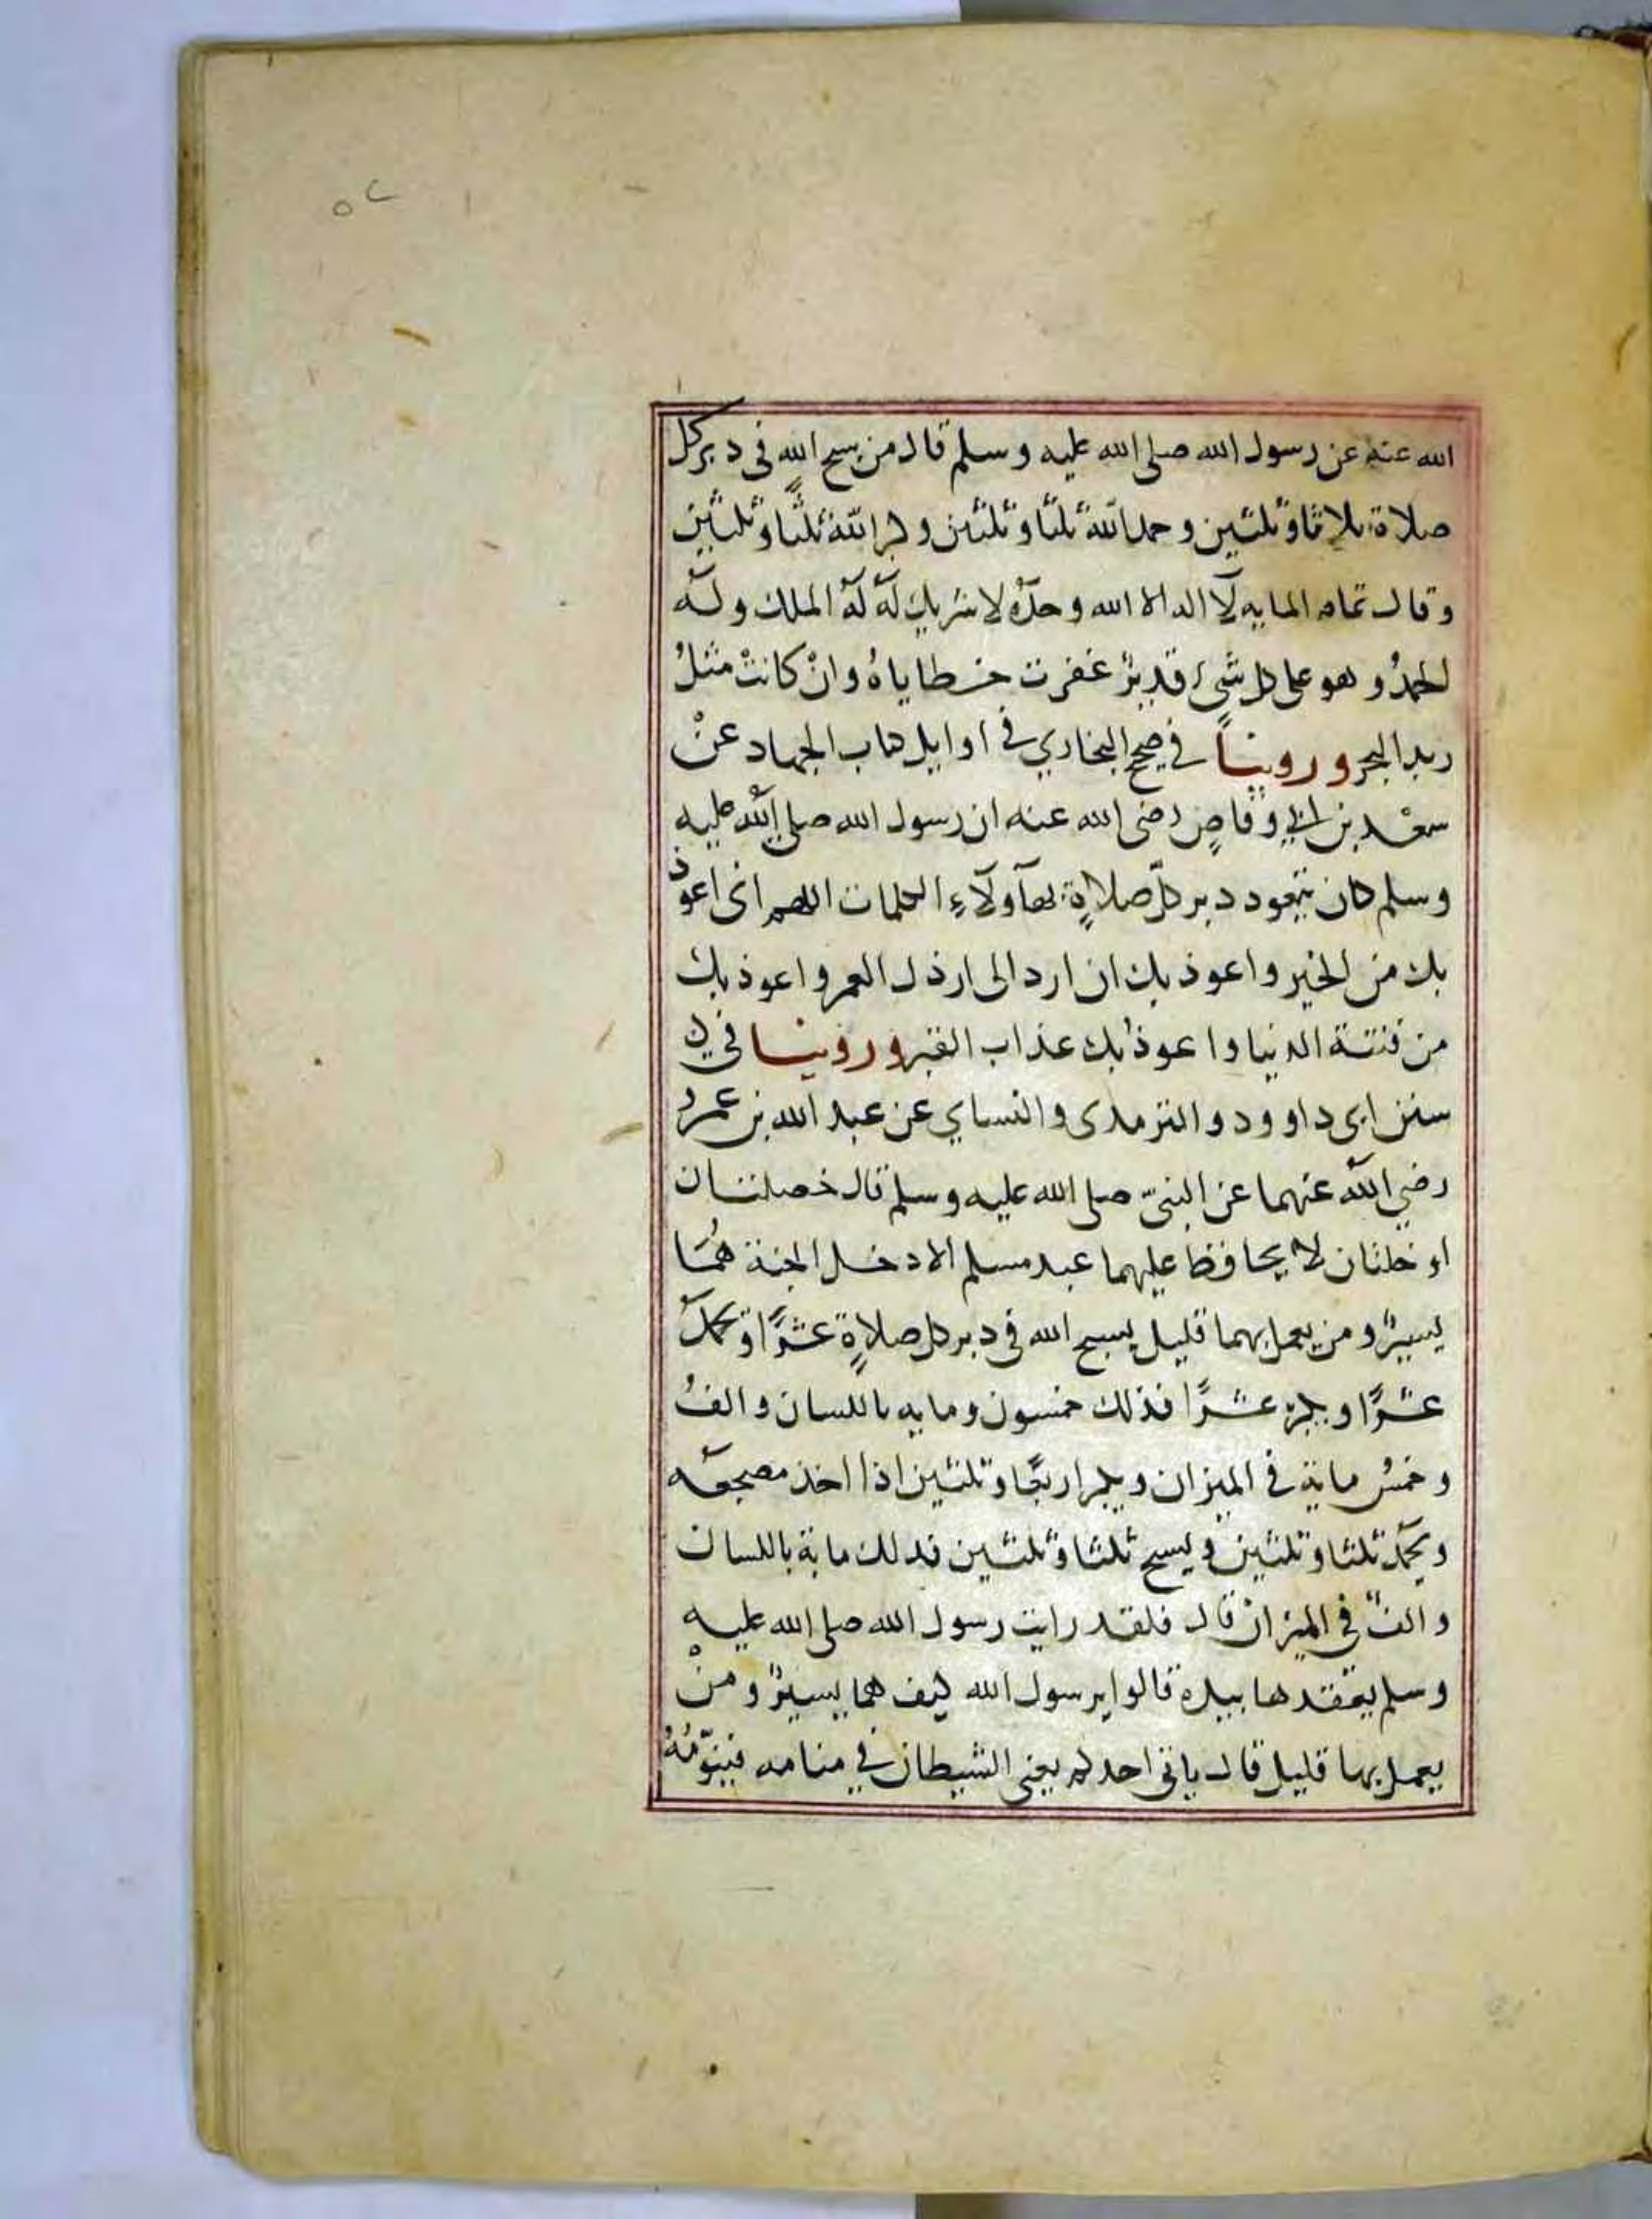 ٥٢
الله عنه عن رسول الله صلى الله عليه وسلم قال من سبح الله فى دبر كل
صلاة ثلاثا وثلثين وحمد الله ثلثا وثلثين وكبر الله ثلثا وثلثين
وقال تمام الماية لا اله الا الله وحده لا شريك له له الملك وله
الحمدُ وهو على كل شىء قديرٌ غفرت خطاياهُ وانْ كانتْ مثلُ
زبد البحر وروينا في صحيح البخاري في اوايل كتاب الجهاد عنْ
سعْد بن ابي وقاصٍ رضى الله عنه ان رسول الله صلى الله عليه
وسلم كان يتعوذ دبر كلّ صلاةٍ بهآولآءِ الكلمات اللهم انى اعوذ
بك من الجبن واعوذ بك ان ارد الى ارذل العمر واعوذ بك
من فتنة الدنيا واعوذُ بك عذاب القبر وروينا فى
سنن ابى داوود والترمذى والنساي عن عبد الله بن عمرو
رضي الله عنهما عن النبىّ صلى الله عليه وسلم قال خصلتان
او خلتان لا يحافظ عليهما عبد مسلم الا دخل الجنة هُمَا
يسيرٌ ومن يعمل بهما قليل يسبح الله فى دبر كل صلاةٍ عشرًا ويحمد
عشرًا ويكبر عشرًا فذلك خمسون وماية باللسان والفُ
وخمسُ ماية في الميزان ويكبر اربعًا وثلثين اذا اخذ مضجعه
ويحمد ثلثا وثلثين ويسبح ثلثا وثلثين فذلك ماية باللسان
والفٌ في الميزان قال فلقد رايت رسول الله صلى الله عليه
وسلم يعقدها بيده قالوا يرسول الله كيف هما يسيرٌ ومنْ
يعمل بها قليل قال ياتى احدكم يعنى الشيطان في منامه فينوّمُهُ